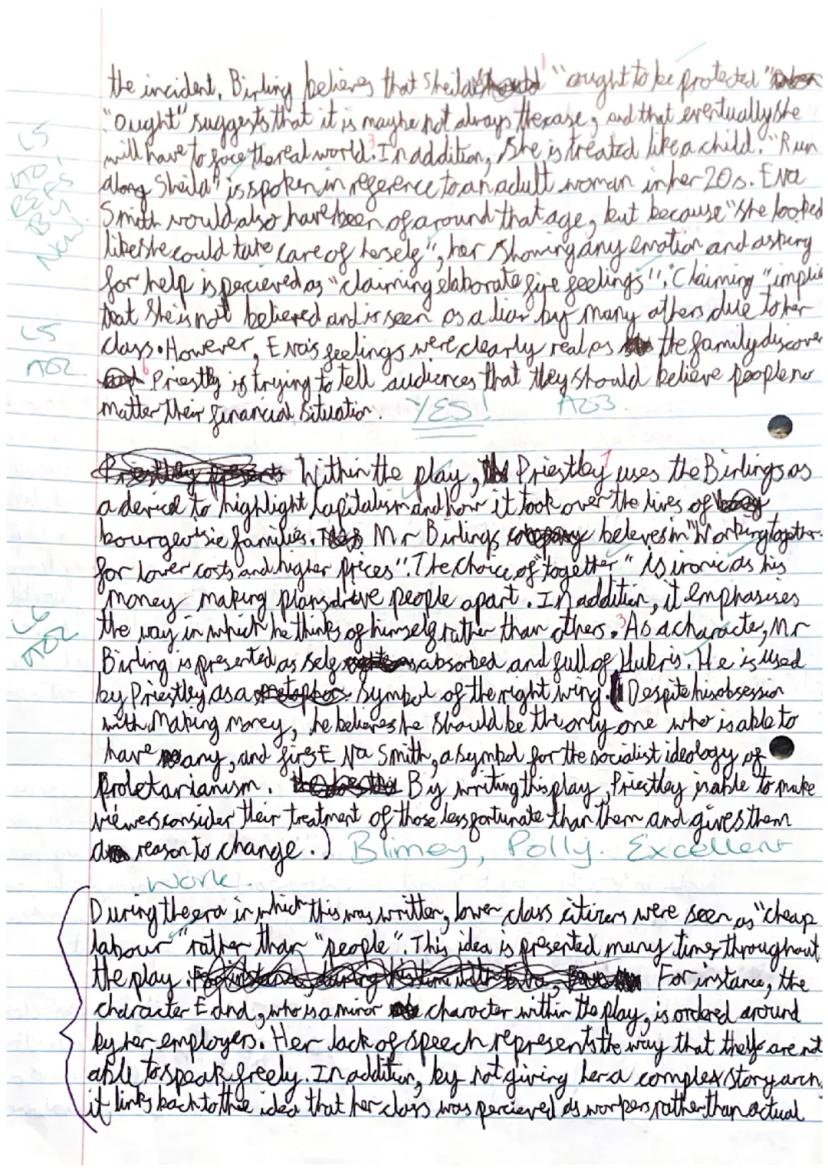 the incident, Birling believes that Sheila "ought to be protected"
"ought" suggests that it is maybe not always the case, and that eventually she
will have to face the real world. In addition, she is treated like a child. "Run
along Sheila" is spoken in reference to an adult woman in her 20s. Eva
Smith would also have been of around that age, but because "she looked
like she could take care of herself", her showing any emotion and asking
for help is percieved as "claiming elaborate fine feelings". "Claiming" implie
that she is not believed and is seen as a liar by many others due to her
class. However, Eva's feelings were clearly real as the family discover
Priestly is trying to tell audiences that they should believe people no
matter their financial situation. YES! AO3
L5
L5
AO2
Within the play, Priestley uses the Birlings as
a device to highlight capitalism and how it took over the lives of
bourgeoisie families. Mr Birlings believes in "Working together
for lower costs and higher prices". The choice of "together" is ironic as his
money making plans drive people apart. In addition, it emphasises
the way in which he thinks of himself rather than others. As a characte, Mr
Birling is presented as self absorbed and full of Hubris. He is used
by Priestley as a symbol of the right wing. (Despite his obsession
with Making money, he believes he should be the only one who is able to
have any, and fires Eva Smith, a symbol for the socialist ideology of
Proletarianism. By writing this play, Priestley is able to make
viewers consider their treatment of those less fortunate than them and gives them
a reason to change.) Blimey, Polly. Excellent
work.
L6
AO2
During the era in which this was written, lower class citizens were seen as "cheap
labour" rather than "people". This idea is presented many times throughout
the play. For instance, the
character Edna, who is a minor character within the play, is ordered around
by her employers. Her lack of speech represents the way that they are not
able to speak freely. In addition, by not giving her a complex story arch
it links back to the idea that her class was percieved as workers rather than actual